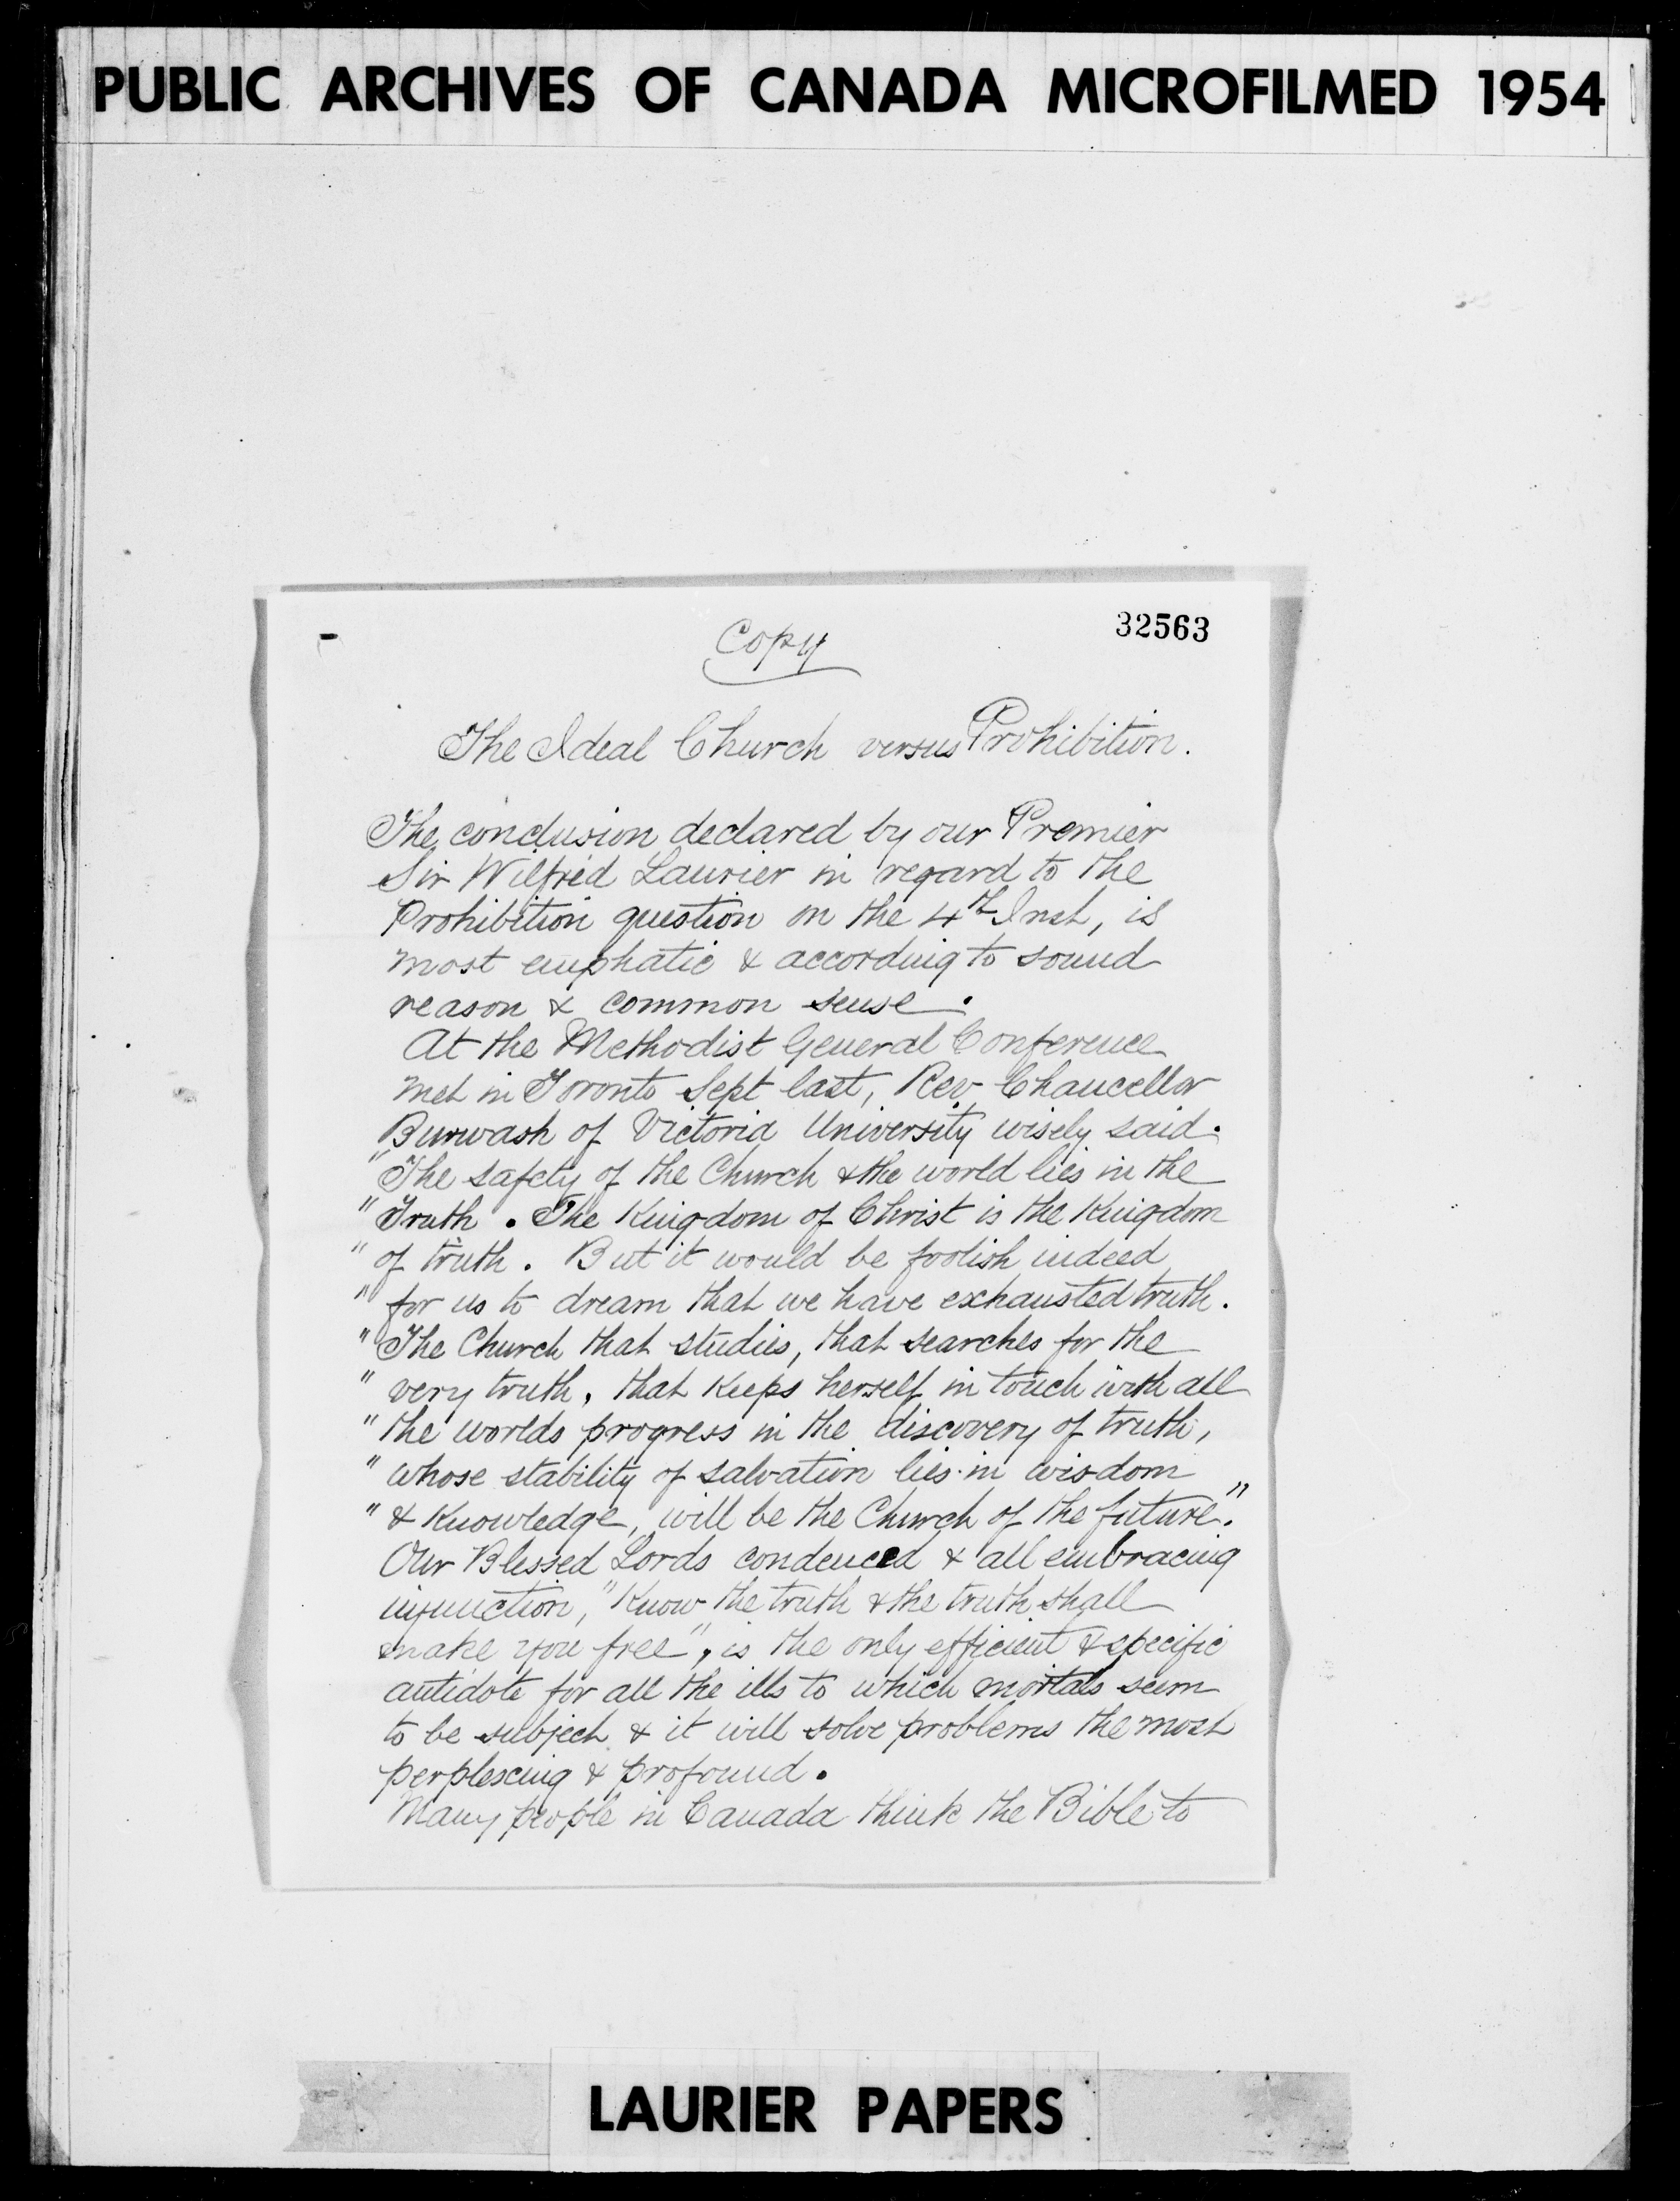 PUBLIC ARCHIVES OF CANADA MICROFILMED 1954
Copy
32563
The Ideal Church versus Prohibition.
The conclusion declared by our Premier
Sir Wilfrid Laurier in regard to the
Prohibition question on the 4th Inst, is
most emphatic & according to sound
reason & common sense.
At the Methodist General Conference
met in Toronto Sept last, Rev Chancellor
Burwash of Victoria University wisely said.
"The safety of the Church & the world lies in the
" Truth. The Kingdom of Christ is the Kingdom
" of truth. But it would be foolish indeed
" for us to dream that we have exhausted truth.
" The Church that studies, that searches for the
" very truth, that keeps herself in touch with all
" the worlds progress in the discovery of truth,
" whose stability of salvation lies in wisdom
" & knowledge, will be the Church of the future."
Our Blessed Lords condenced & all embracing
injunction, "Know the truth & the truth shall
make you free", is the only efficient & specific
antidote for all the ills to which mortals seem
to be subject & it will solve problems the most
perplexing & profound.
Many people in Canada think the Bible to
LAURIER PAPERS